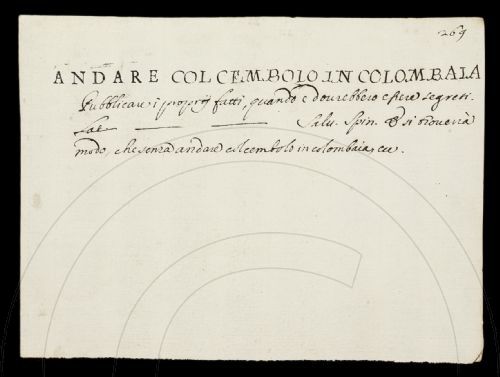 269
ANDARE COL CEMBOLO IN COLOMBAIA
Pubblicare i proprij fatti, quando e dovrebbero essere segreti.
Lat Salv. Spin. E si troverrà
modo, che senza andare col cembolo in colombaia, ecc.